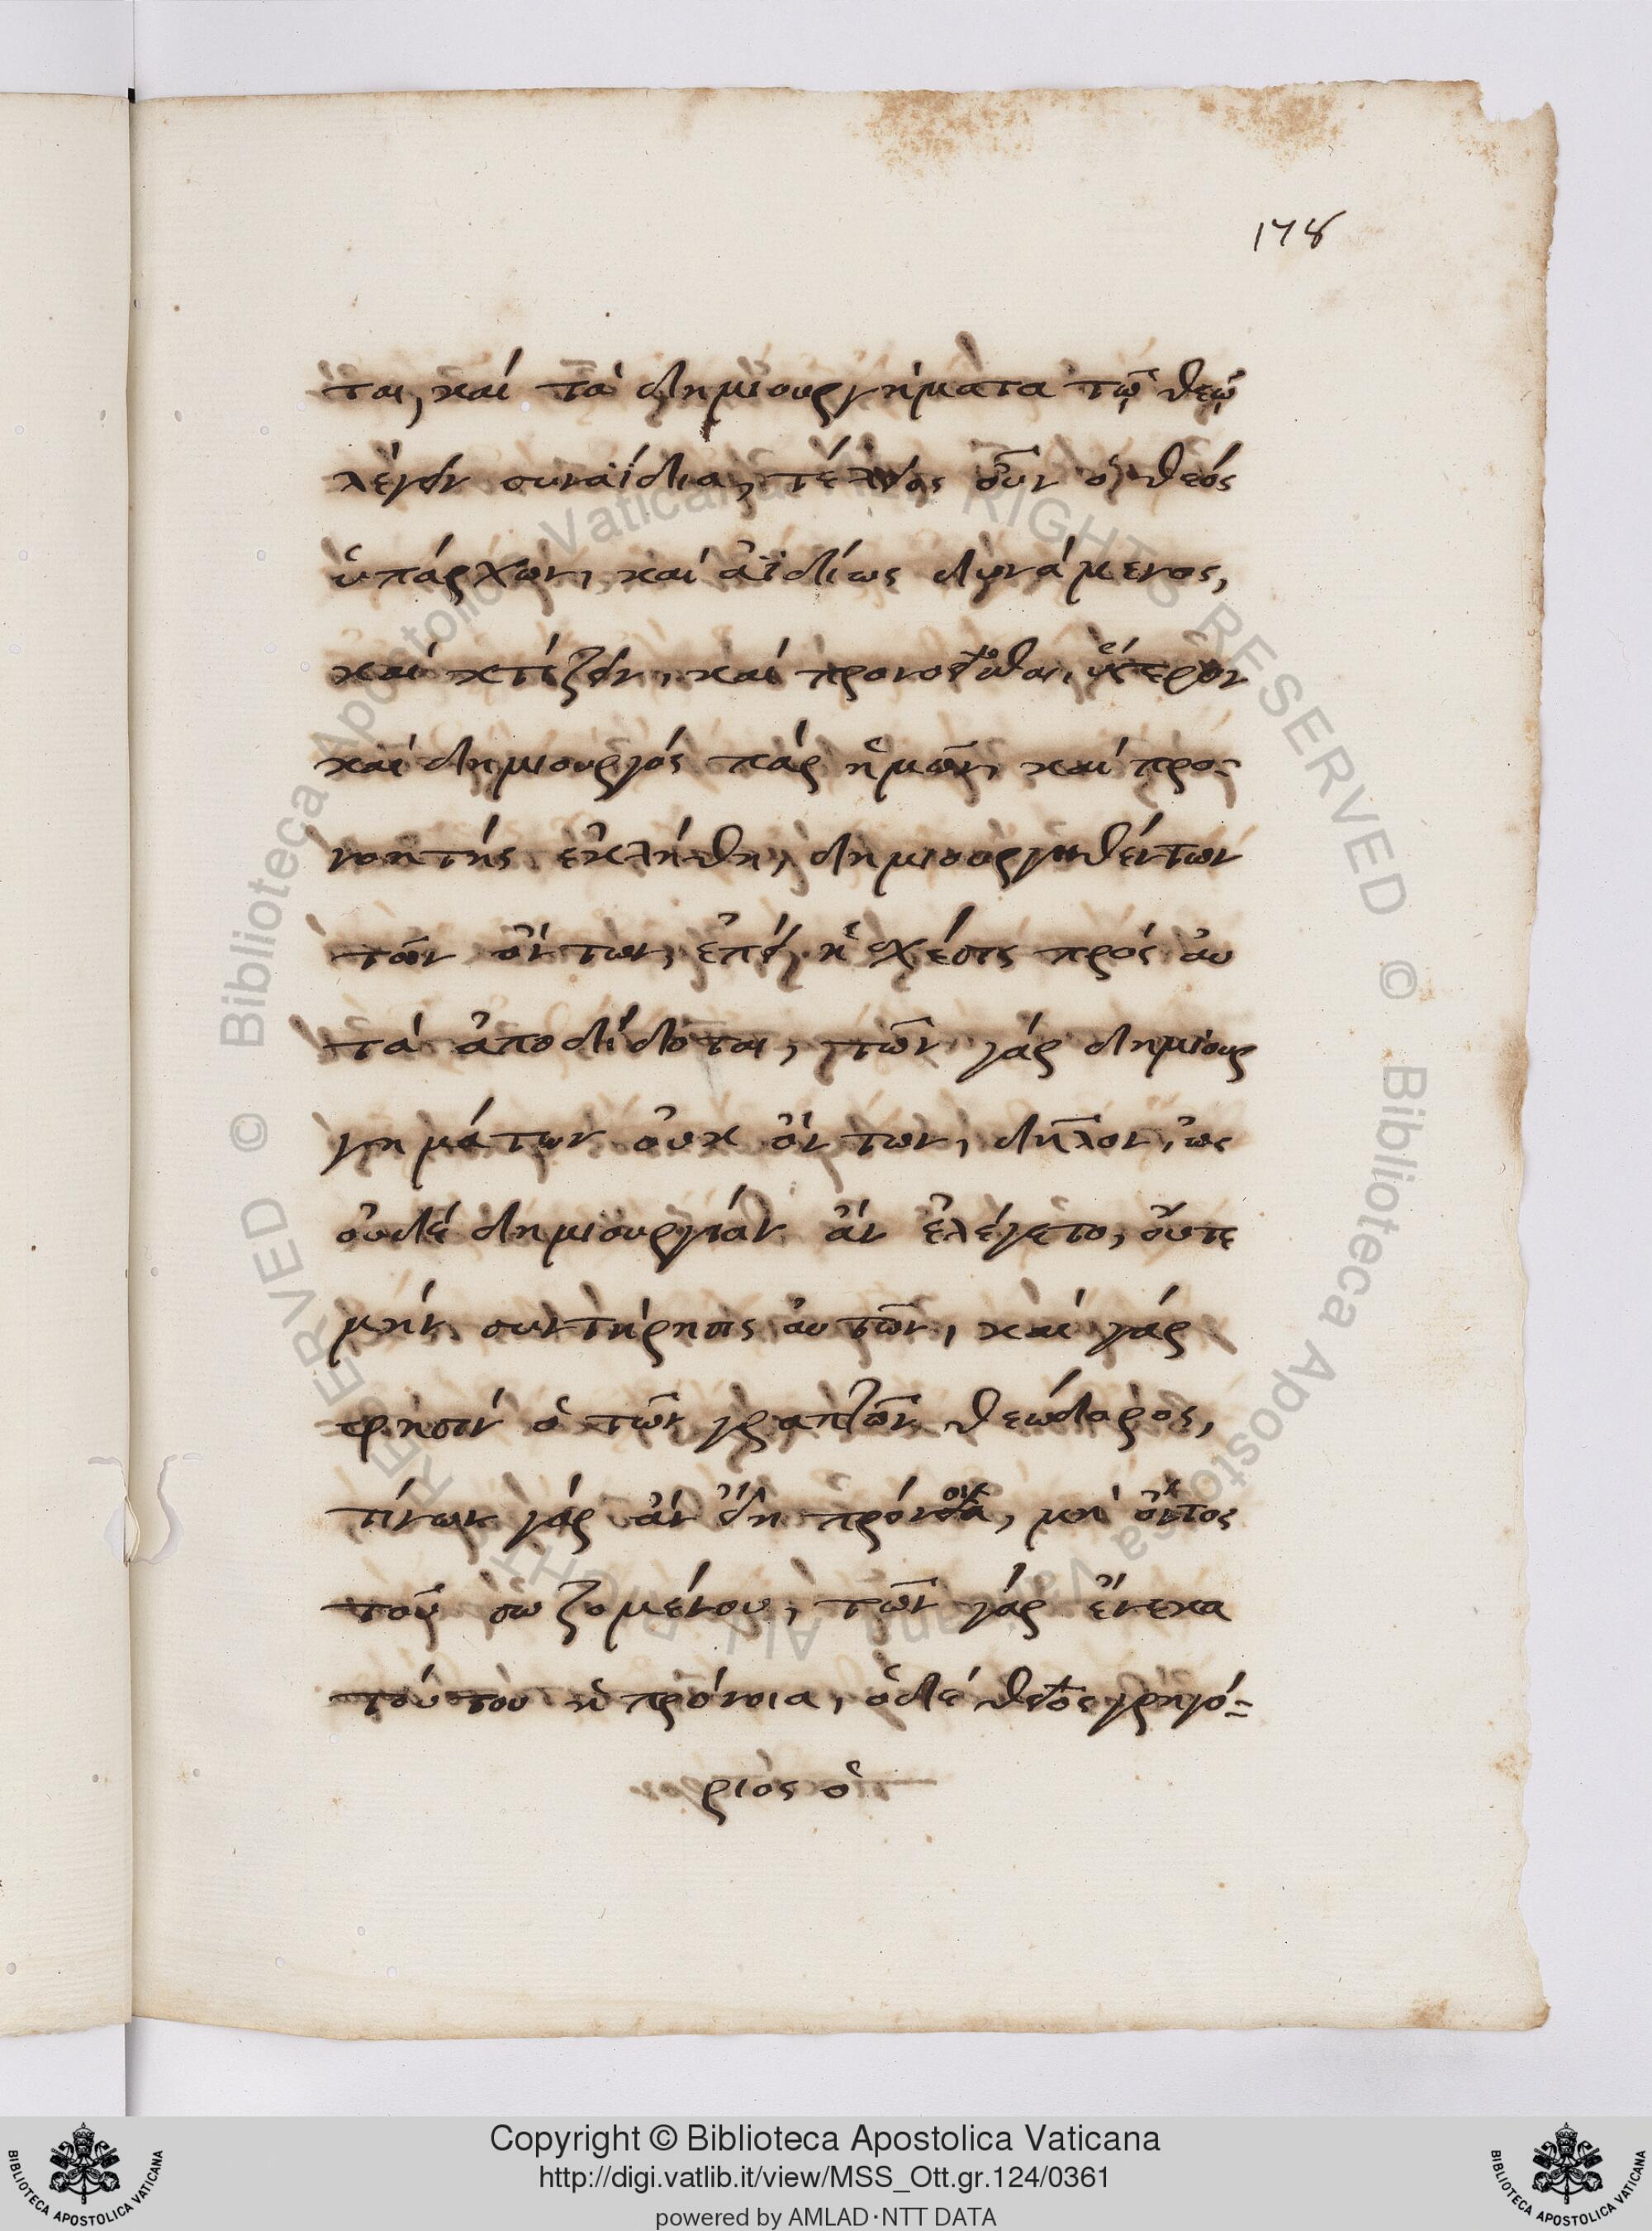 178
ται, καὶ τὰ δημιουργήματα τῷ θεῷ
λέγειν συναΐδια, τέλειος οὖν ὁ θεός
ὑπάρχων, καὶ ἀϊδίως δυνάμενος,
καὶ κτίζειν, καὶ προνοεῖσθαι, ὕστερον
καὶ δημιουργός παρ ἡμῶν, καὶ προ-
νοητής ἐκλήθη, δημιουργηθέντων
τῶν ὄντων, ἐπεὶ ἡ σχέσις πρός αυ
τὰ ἀποδίδοται, τῶν γάρ δημιουρ
γημάτων οὐκ ὄντων, δῆλον, ὡς
οὐδέ δημιουργίαν ἄν ἐλέγετο, οὔτε
μήν συντήρησις αὐτῶν, καὶ γάρ
φησιν ὁ τῶν γραπτῶν θεόδωρος,
τίνων γάρ ἄν εἴη πρόνοια, μὴ ὄντος
τοῦ σωζομένου, τῶν γάρ ἕνεκα
τούτου ἡ πρόνοια, ὁ δέ θεῖος γρηγό-
ριος ὁ
Copyright © Biblioteca Apostolica Vaticana
http://digi.vatlib.it/view/MSS_Ott.gr.124/0361
powered by AMLAD·NTT DATA
BIBLIOTECA APOSTOLICA VATICANA
BIBLIOTECA APOSTOLICA VATICANA
© Biblioteca Apostolica Vaticana ALL RIGHTS RESERVED
© Biblioteca Apostolica Vaticana ALL RIGHTS RESERVED